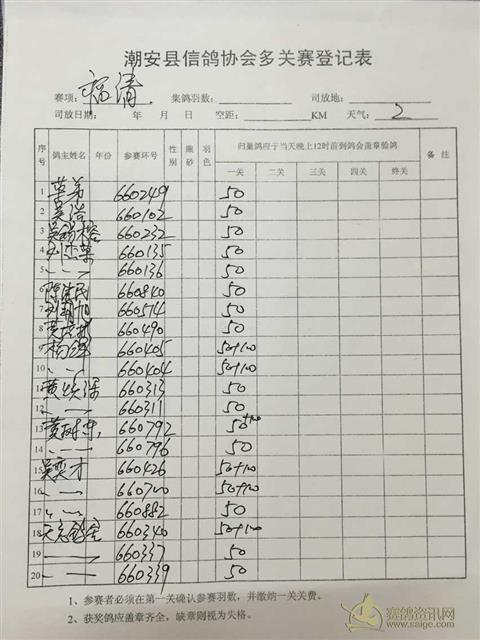 潮安县信鸽协会多关赛登记表
赛项： 福清 集鸽羽数： 司放地：
司放日期： 年 月 日 空距： KM 天气： 2
序号 鸽主姓名 年份 参赛环号 性别 眼砂 羽色 归巢鸽应于当天晚上12时前到鸽会盖章验鸽 备注
一关 二关 三关 四关 终关
1 660249 50
2 660102 50
3 660232 50
4 660135 50
5 660136 50
6 660840 50
7 660574 50
8 660490 50
9 660405 50+100
10 660404 50+100
11 660313 50
12 660311 50
13 黄树东 660792 50+100
14 660796 50
15 吴奕才 660426 50+100
16 660700 50+100
17 660882 50
18 660340 50+100
19 660337 50
20 660339 50
1、参赛者必须在第一关确认参赛羽数，并缴纳一关关费。
2、获奖鸽应盖章齐全，缺章则视为失格。
赛鸽资讯网
www.saige.com